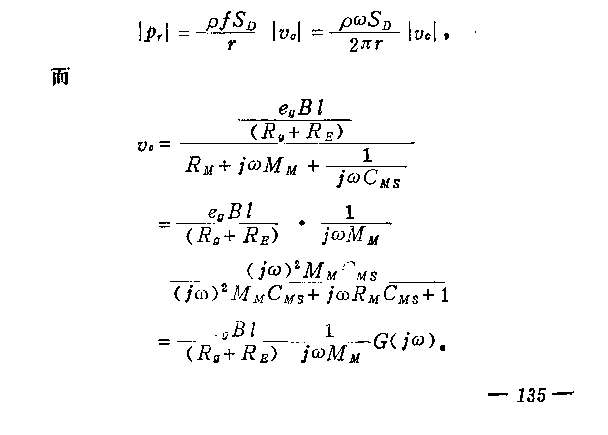 |p_r| = \frac{ρfS_D}{r} |v_c| = \frac{ρωS_D}{2πr} |v_c|,
而
v_c = \frac{\frac{e_g B l}{(R_g + R_E)}}{R_M + jωM_M + \frac{1}{jωC_{MS}}}
= \frac{e_g B l}{(R_g + R_E)} · \frac{1}{jωM_M}
\frac{(jω)^2 M_M C_{MS}}{(jω)^2 M_M C_{MS} + jωR_M C_{MS} + 1}
= \frac{_g B l}{(R_g + R_E)} \frac{1}{jωM_M} G(jω)。
— 135 —